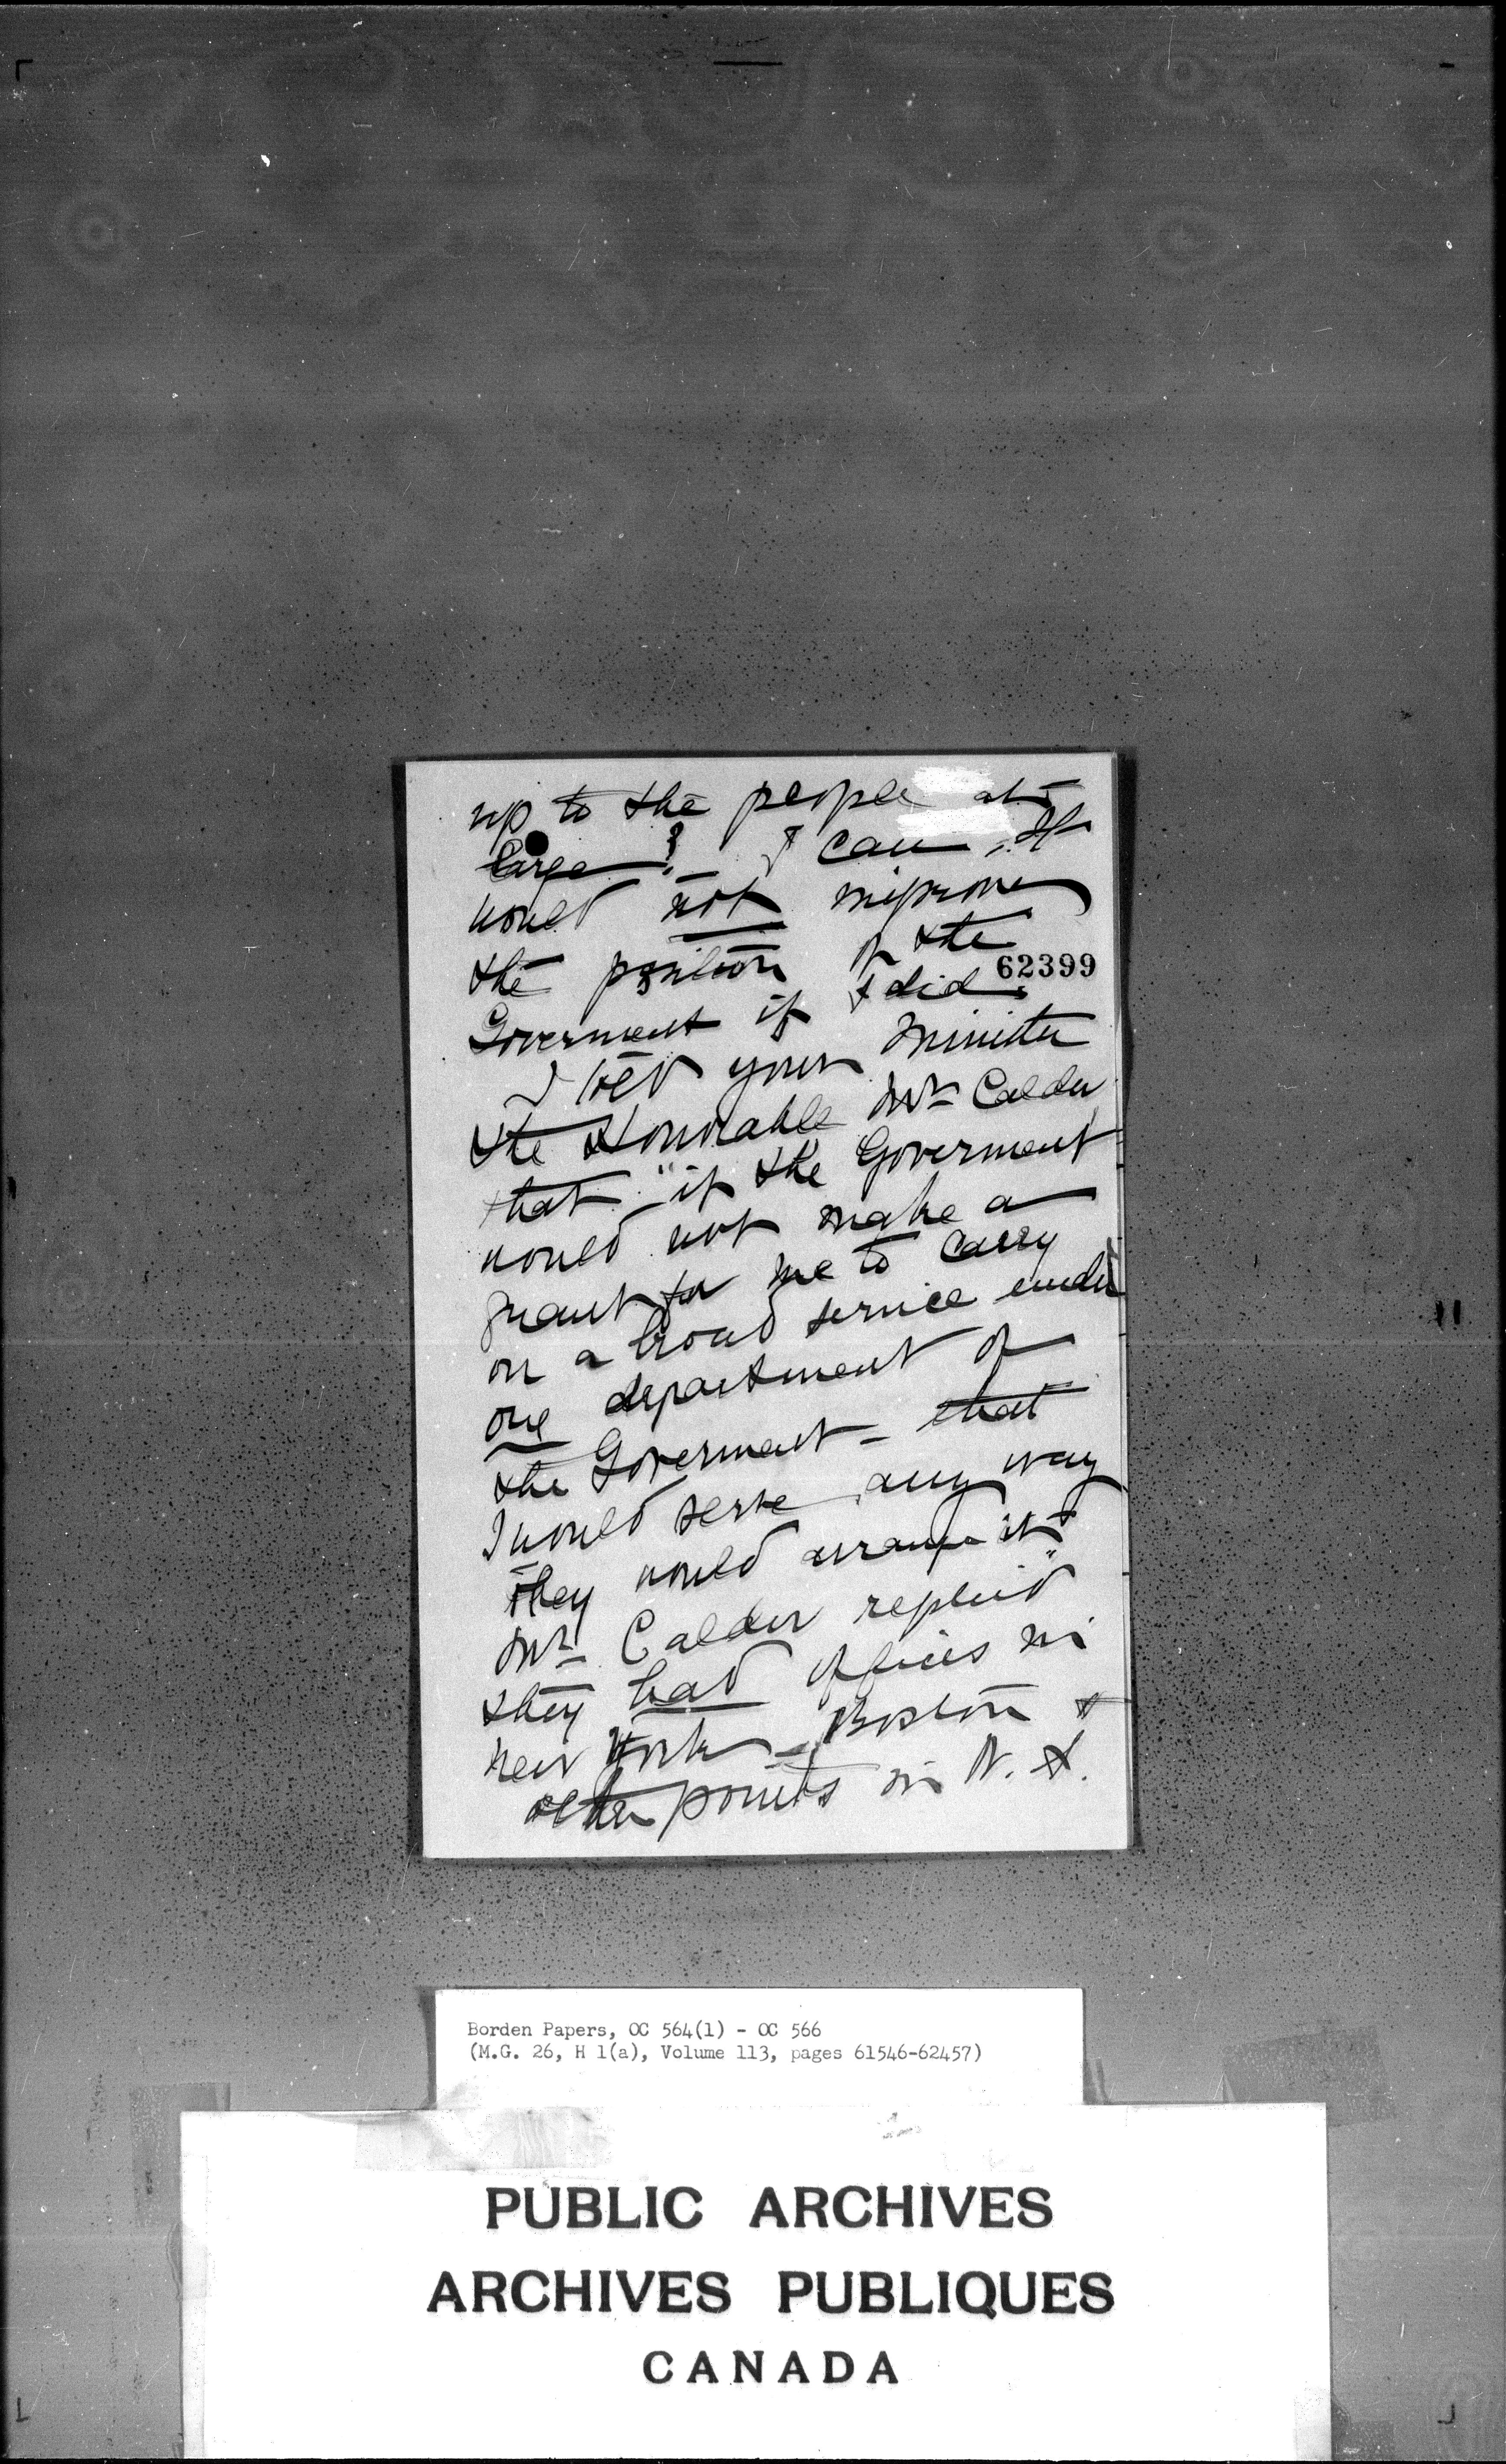 up to the people at
large? I can. It
would not improve
the position of the
62399
Goverment if I did.
I told your Minister
the Honorable Mr Calder
that "if the Goverment
would not make a
grant for me to carry
on a broad service under
one department of
the Goverment - that
I would serve any way
they would arrange it"
Mr Calder replied
they had offices in
New York - Boston &
other points in N. S.
Borden Papers, OC 564(1) - OC 566
(M.G. 26, H 1(a), Volume 113, pages 61546-62457)
PUBLIC ARCHIVES
ARCHIVES PUBLIQUES
CANADA